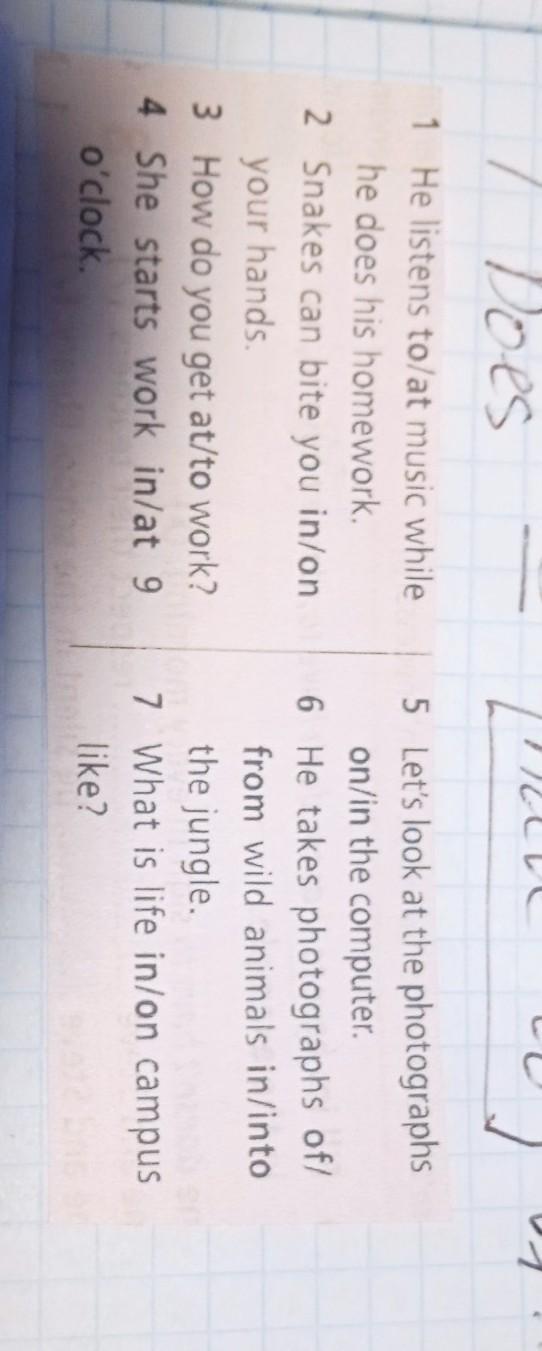 Does
1 He listens to/at music while
he does his homework.
2 Snakes can bite you in/on
your hands.
3 How do you get at/to work?
4 She starts work in/at 9
o'clock.
5 Let's look at the photographs
on/in the computer.
6 He takes photographs of/
from wild animals in/into
the jungle.
7 What is life in/on campus
like?